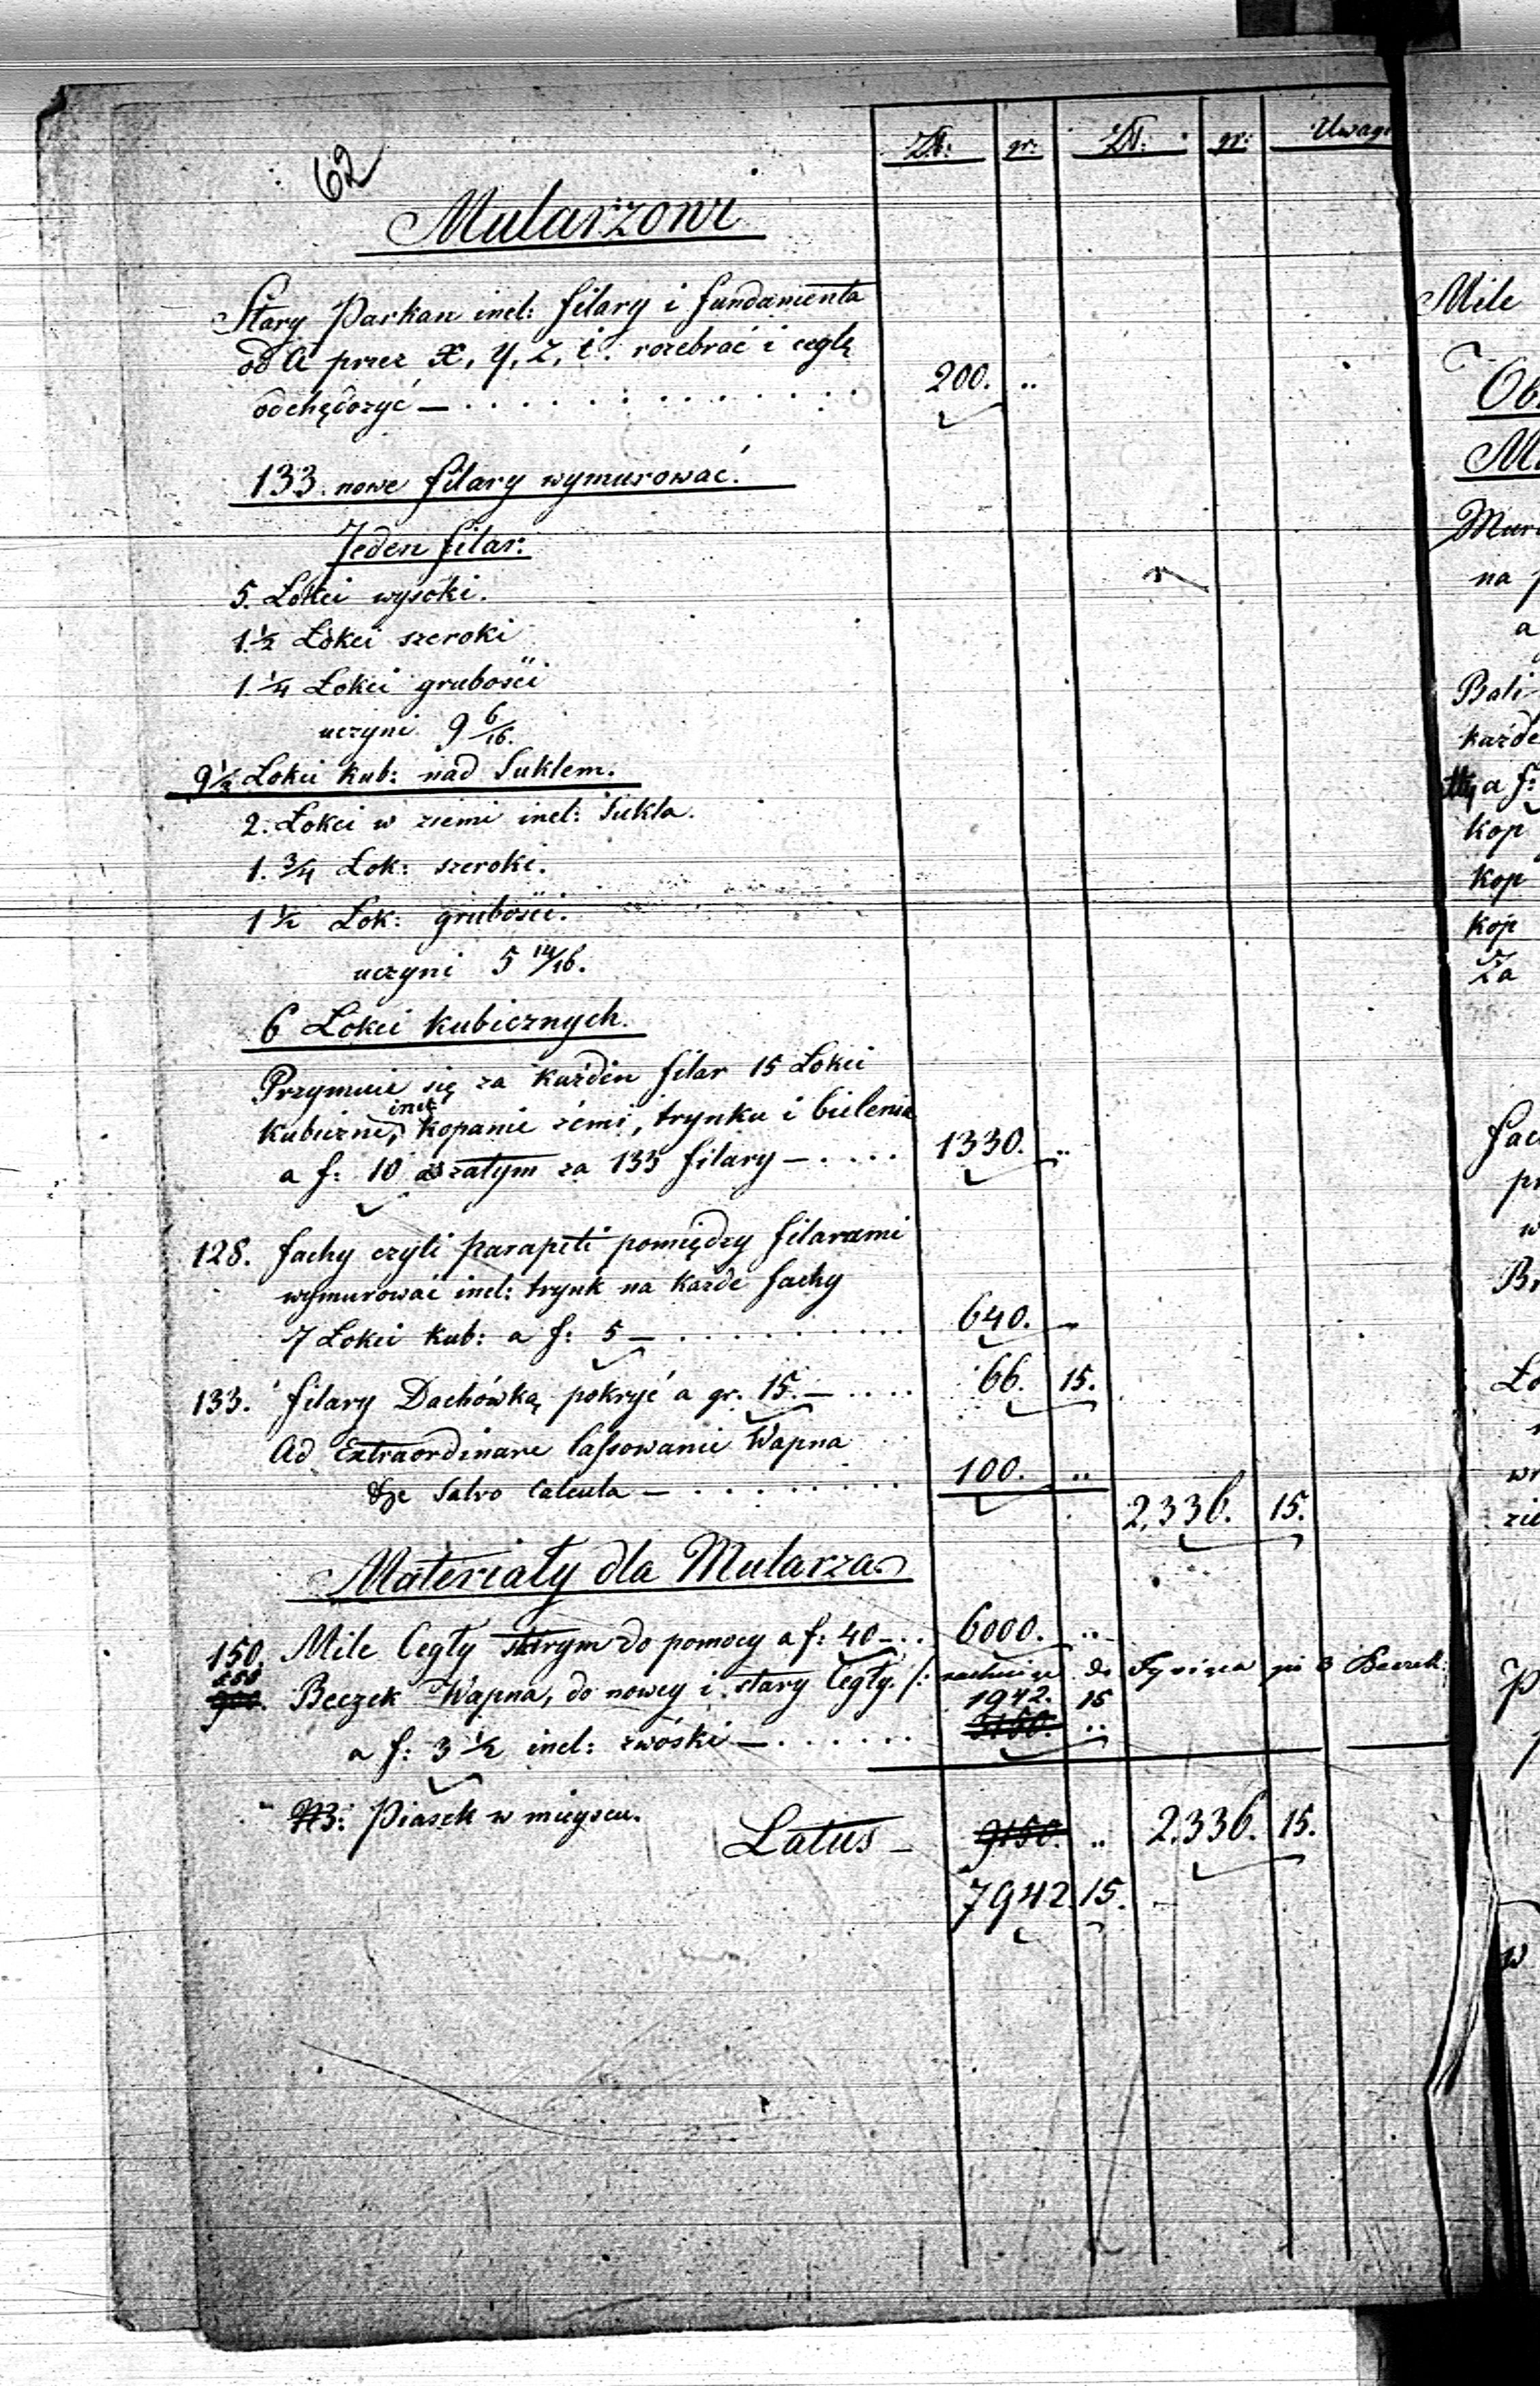 Zł: gr: Zł: gr: Uwagi
62
Mularzowi
Stary Parkan incl: filary i fundamenta
od A przez X, Y, Z, t. rozebrać i cegłę
odchędożyć — 200. ..
133. nowe filary wymurować.
Jeden filar:
5. Łokci wysoki.
1.½ Łokci szeroki
1.¼ Łokci grubości
uczyni 9 6/16.
9½ Łokci kub: nad Suklem.
2. Łokci w ziemi incl: Sukla.
1.¾ Łok: szeroki.
1½ Łok: grubości.
uczyni 5 14/16.
6 Łokci kubicznych.
Przymuie się za każden filar 15 Łokci
incl
kubiczne, kopanie ziemi, trynku i bielenia
a f: 10 zatym za 133 filary — 1330. ..
128. fachy czyli parapeti pomiędzy filarami
wymurować incl: trynk na każde fachy
7 Łokci kub: a f: 5 — 640. ..
133. filary Dachówką pokryć a gr. 15. — 66. 15.
Ad Extraordinare lassowanie Wapna
&c Salvo Calculo — 100. ..
2,336. 15.
Materiały dla Mularza
150. Mile Cegły starym do pomocy a f: 40 — 6000. ..
555
900. Beczek Wapna, do nowey i stary Cegły /: rachuiąc do Tysiąca po 3 Beczek:
1942. 15
a f: 3½ incl: zwóski — 3150. ..
NB: Piasek w mieyscu.
Latus — 9150. .. 2.336. 15.
7942. 15.
Mile
na
a
Bali
każde
a f:
kop
kop
kop
Za
w